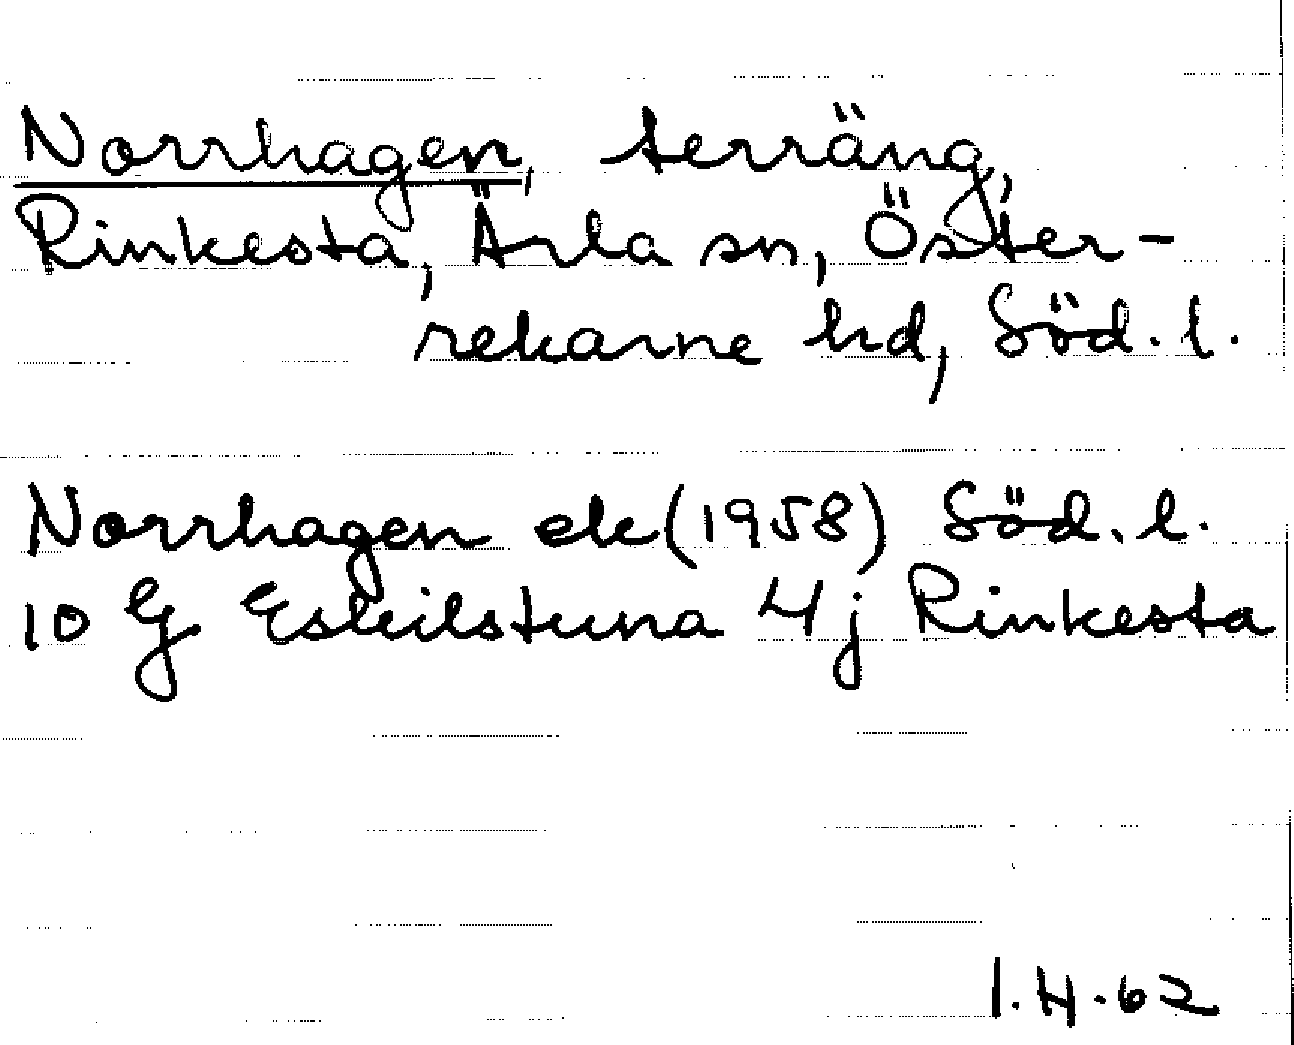 Norrhagen, terräng,
Rinkesta, Ärla sn, Öster-
rekarne hd, Söd. l.
Norrhagen ek (1958) Söd. l.
10 G Eskilstuna 4 j Rinkesta
I.H.62